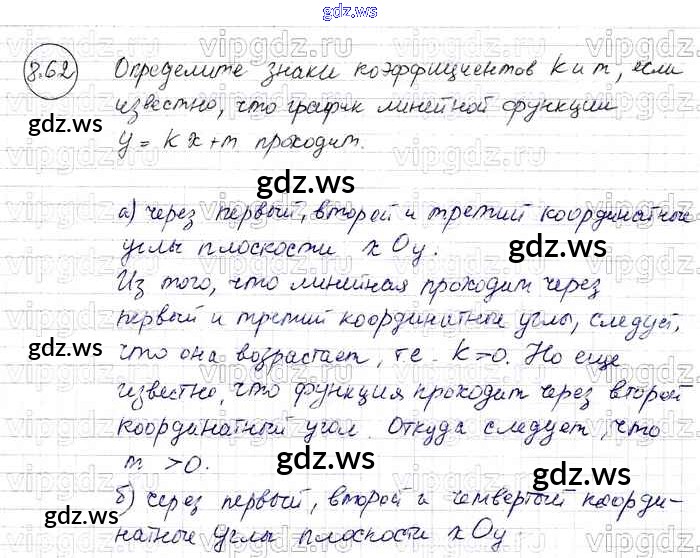 gdz.ws
8.62 Определите знаки коэффициентов k и m, если
известно, что график линейной функции
y = kx+m проходит.
а) через первый, второй и третий координатные
углы плоскости xOy.
Из того, что линейная проходит через
первый и третий координатные углы, следует,
что она возрастает, т.е. k>0. Но еще
известно, что функция проходит через второй
координатный угол. Откуда следует, что
m >0.
б) через первый, второй и четвертый коорди-
натные углы плоскости xOy.
gdz.ws
gdz.ws
gdz.ws
gdz.ws
gdz.ws
gdz.ws
gdz.ws
gdz.ws
gdz.ws
gdz.ws